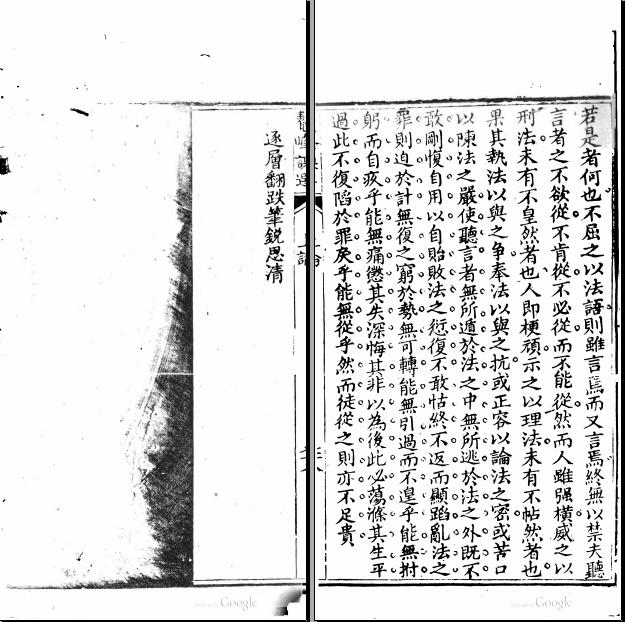 若是者何也不屈之以法語則雖言焉而又言焉終無以禁夫聽
言者之不欲從不肯從不必從而不能從然而人雖强橫威之以
刑法未有不皇然者也人即梗頑示之以理法未有不帖然者也
果其執法以與之争奉法以與之抗或正容以論法之密或苦口
以陳法之嚴使聽言者無所遁於法之中無所逃於法之外既不
敢剛愎自用以自貽敗法之愆復不敢怙終不返而顯蹈亂法之
罪則迫於計無復之窮於勢無可轉能無引過而不遑乎能無拊
躬而自疚乎能無痛懲其失深悔其非以為後此必蕩滌其生平
過此不復陷於罪戾乎能無從乎然而徒從之則亦不足貴
上論
逐層翻跌筆銳思清
Digitized by Google
Digitized by Google